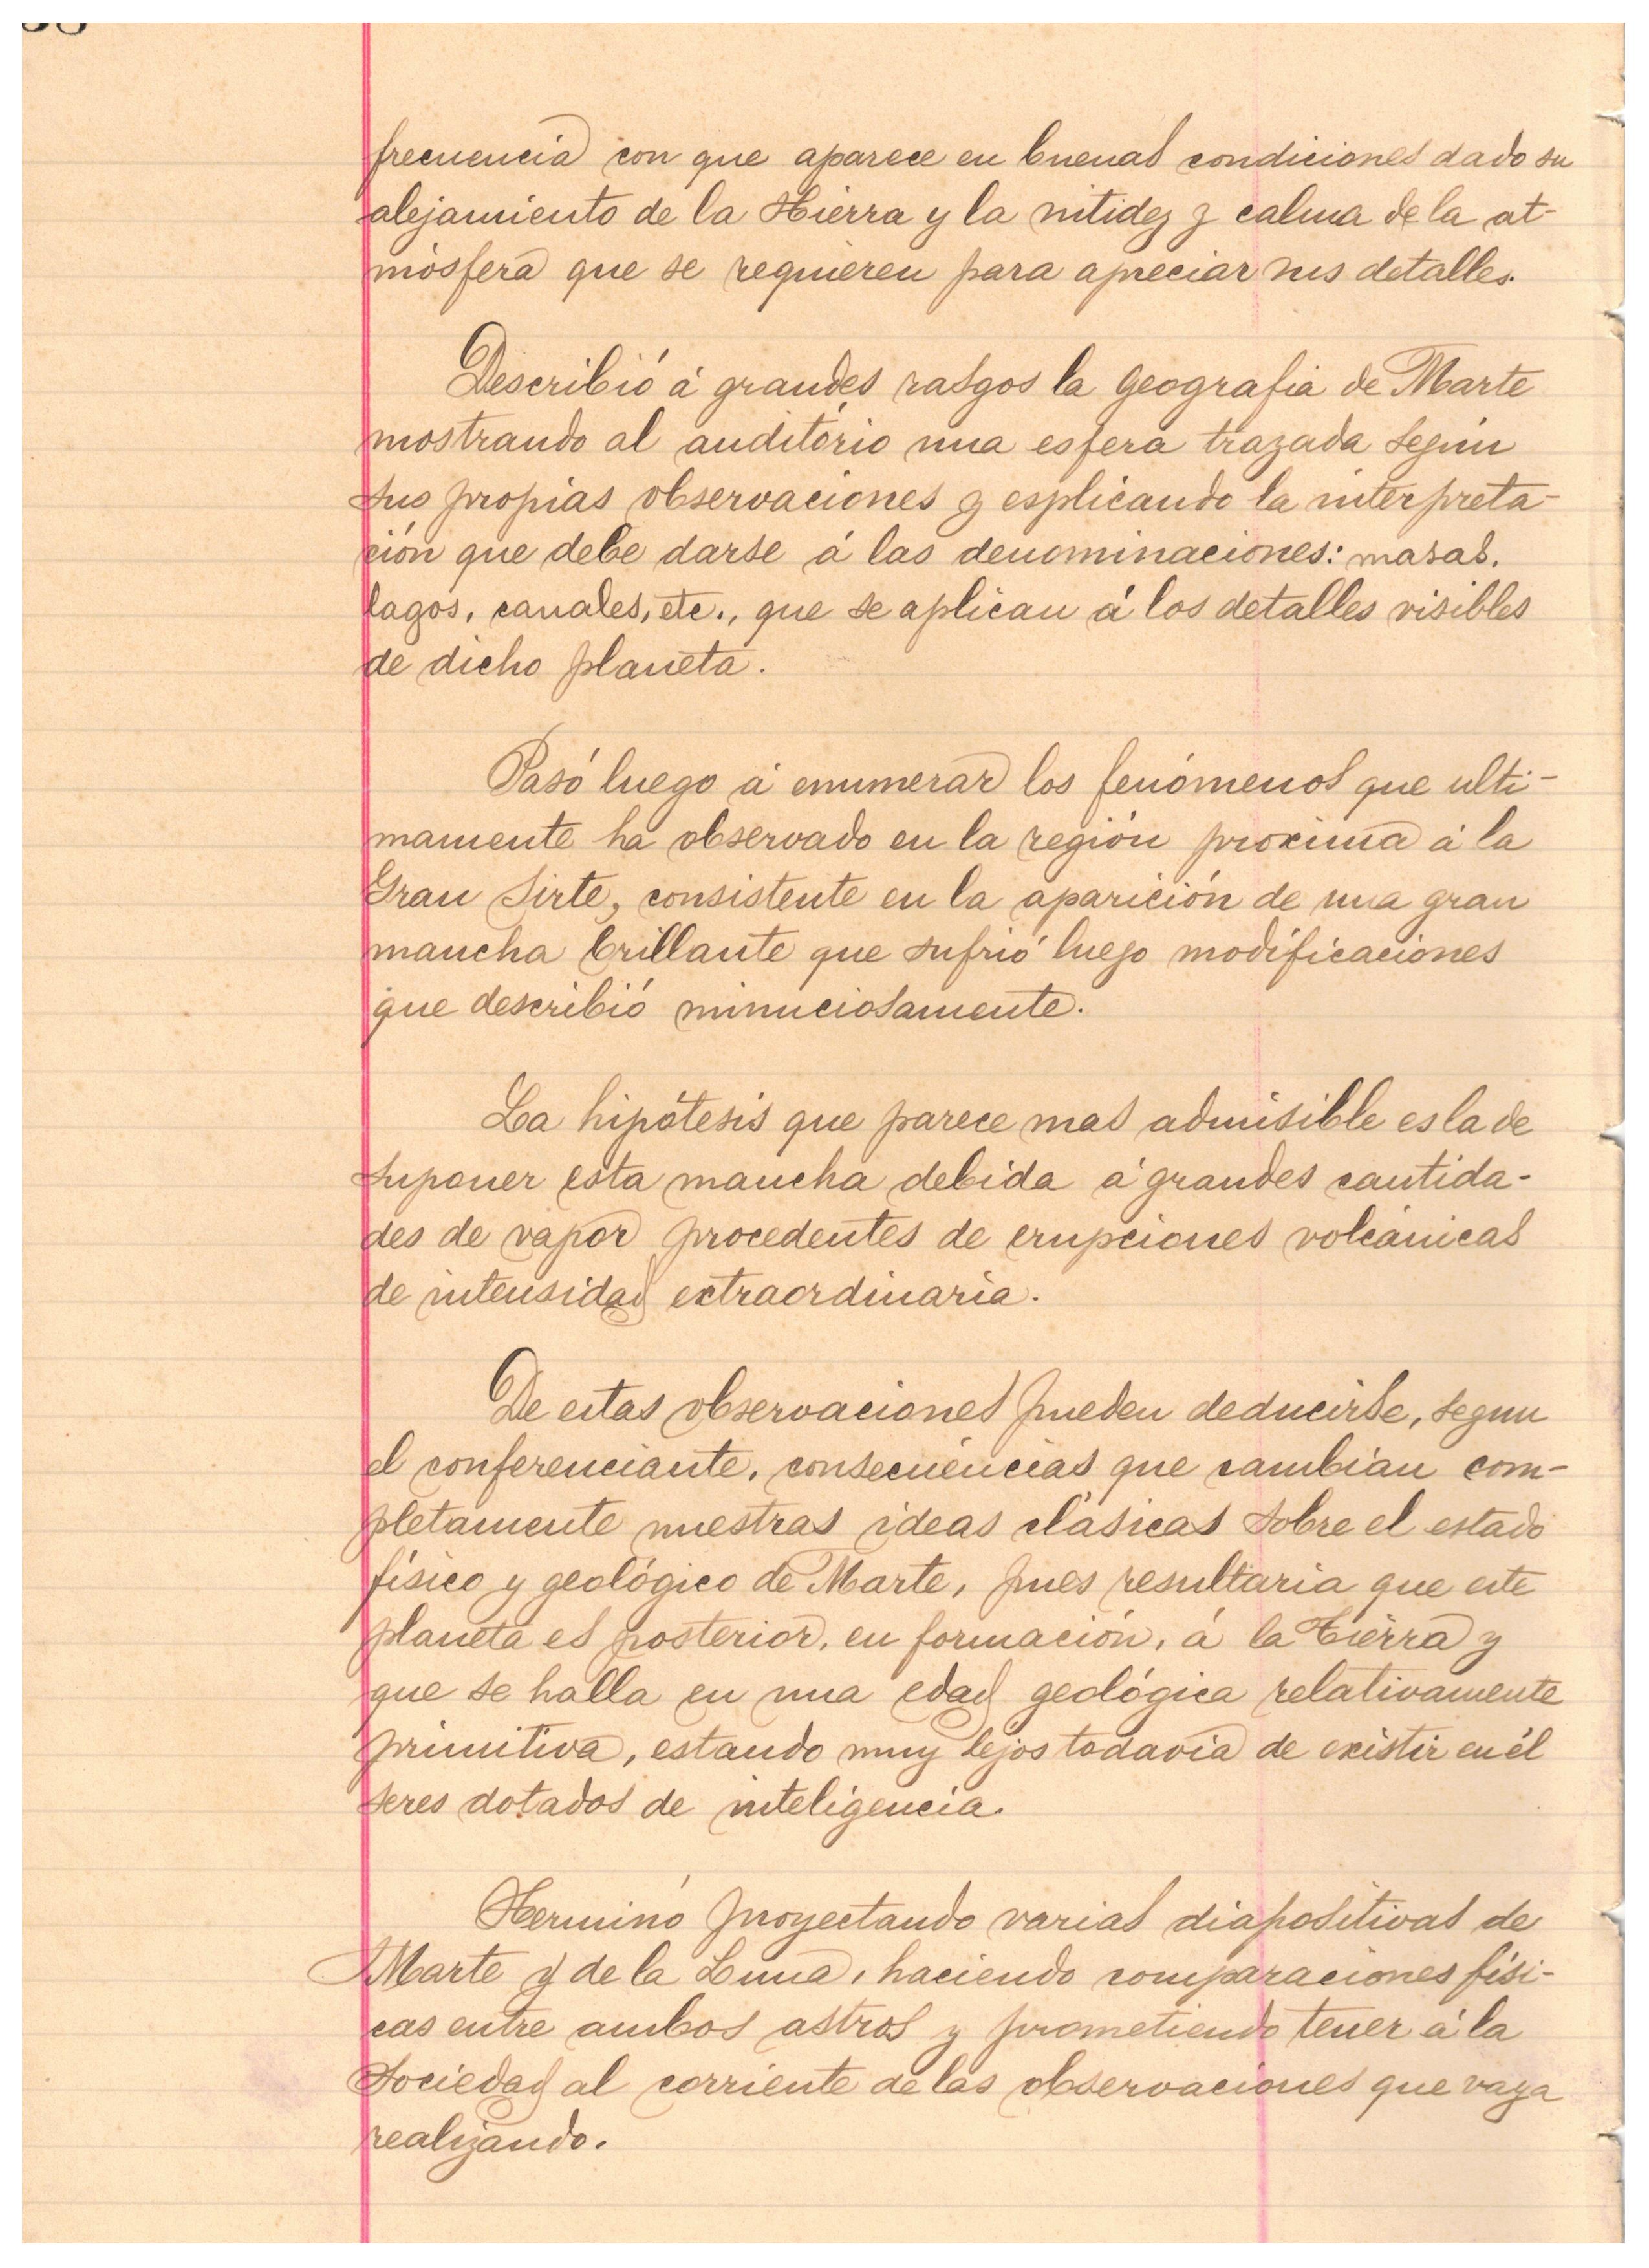 frecuencia con que aparece en buenas condiciones dado su
alejamiento de la Tierra y la nitidez y calma de la at-
mósfera que se requieren para apreciar sus detalles.
Describió á grandes rasgos la Geografia de Marte
mostrando al auditório una esfera trazada según
sus propias observaciones y esplicando la interpreta-
ción que debe darse á las denominaciones: masas,
lagos, canales, etc., que se aplican á los detalles visibles
de dicho planeta.
Pasó luego á enumerar los fenómenos que ulti-
mamente ha observado en la región proxima á la
Gran Sirte, consistente en la aparición de una gran
mancha brillante que sufrió luego modificaciones
que describió minuciosamente.
La hipótesis que parece mas admisible es la de
suponer esta mancha debida á grandes cantida-
des de vapor procedentes de erupciones volcánicas
de intensidad extraordinaria.
De estas observaciones pueden deducirse, segun
el conferenciante, consecuencias que cambian com-
pletamente nuestras ideas clásicas sobre el estado
físico y geológico de Marte, pues resultaria que este
planeta es posterior, en formación, á la Tierra y
que se halla en una edad geológica relativamente
primitiva, estando muy lejos todavia de existir en él
seres dotados de inteligencia.
Terminó proyectando varias diapositivas de
Marte y de la Luna, haciendo comparaciones físi-
cas entre ambos astros y prometiendo tener á la
Sociedad al corriente de las observaciones que vaya
realizando.